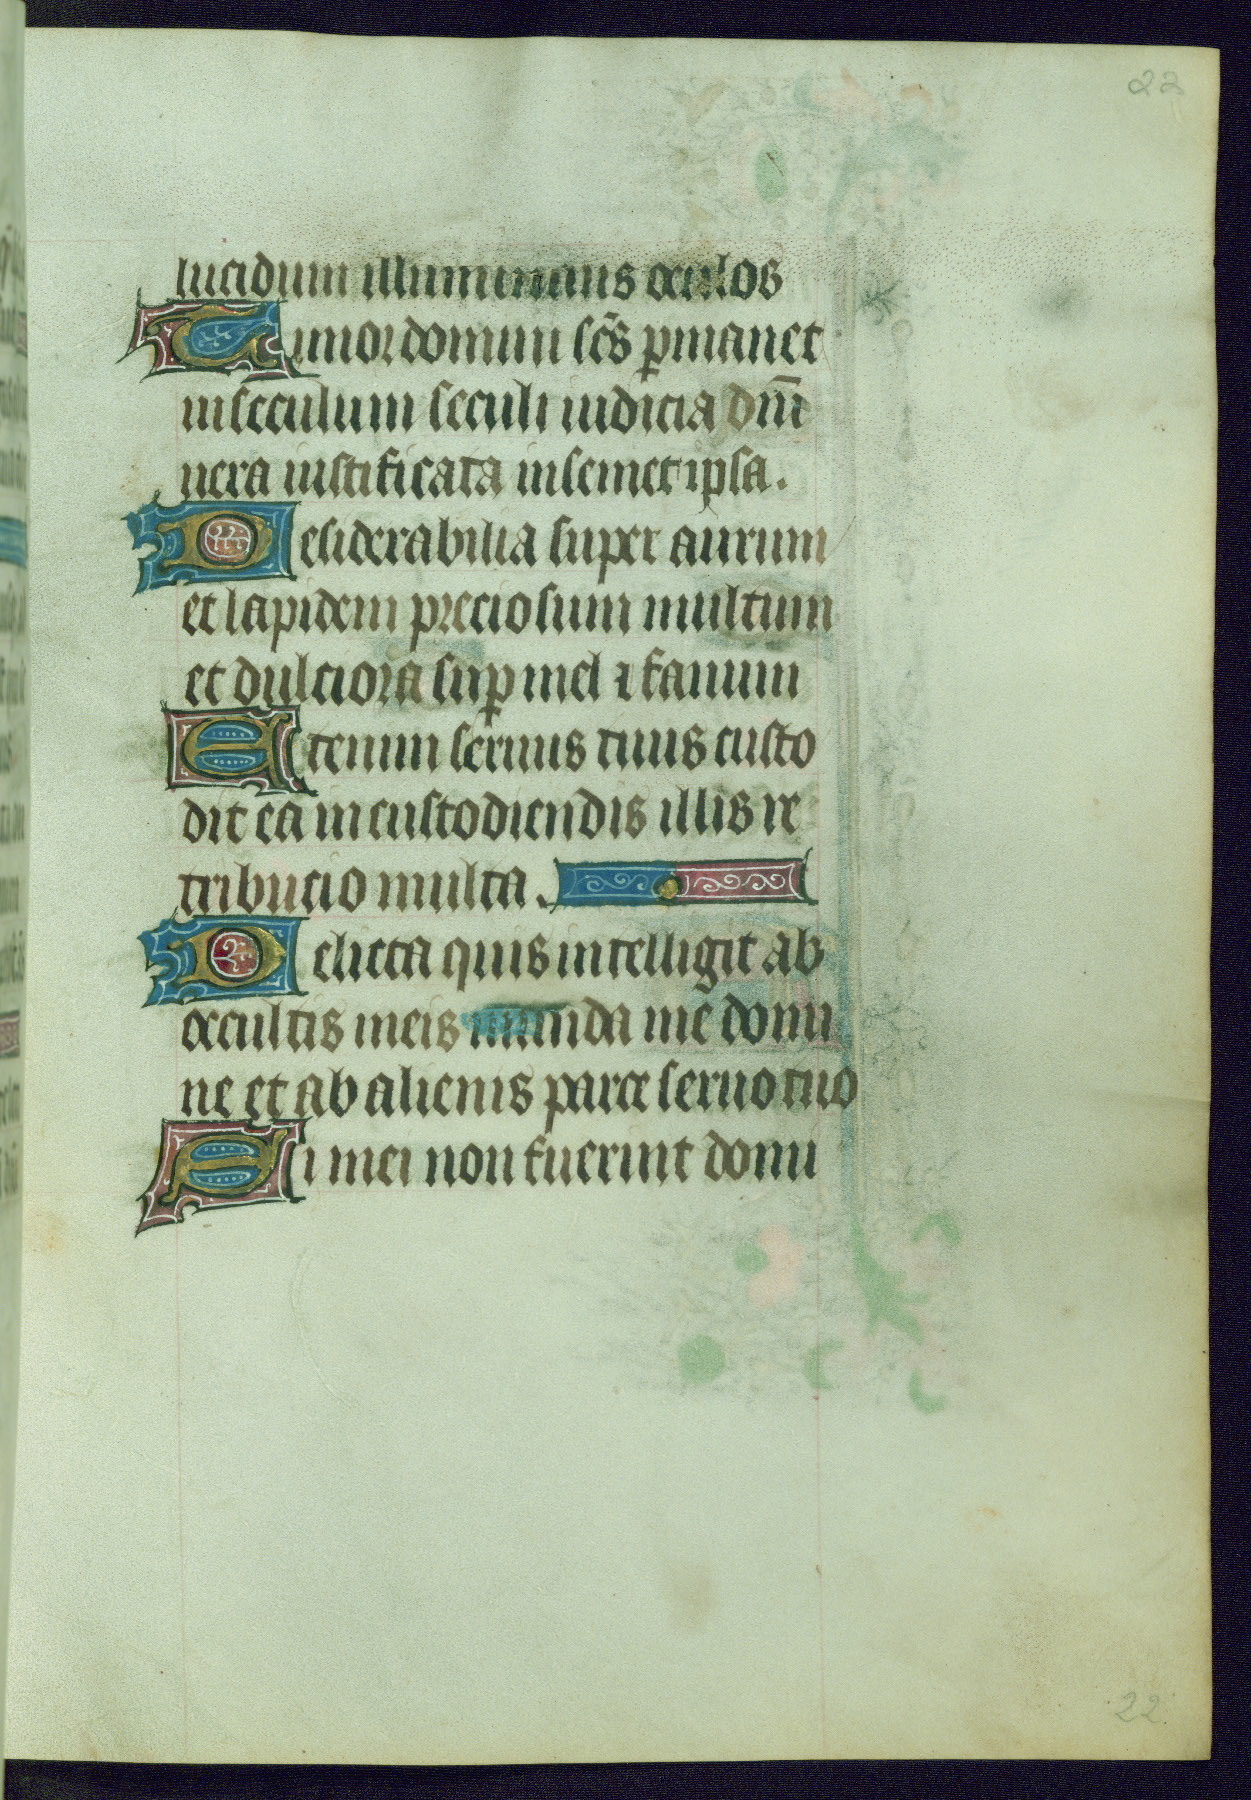 22
lucidum illuminans oculos
Timor domini sc̄s ꝑmanet
in seculum seculi iudicia dn̄i
uera iustificata in semet ipsa.
Desiderabilia super aurum
et lapidem preciosum multum
et dulciora suꝑ mel ⁊ fauum
Etenim seruus tuus custo
dit ea in custodiendis illis re
tribucio multa.
Delicta quis intelligit ab
occultis meis munda me domi
ne et ab alienis parce seruo tuo
Si mei non fuerint domi
22